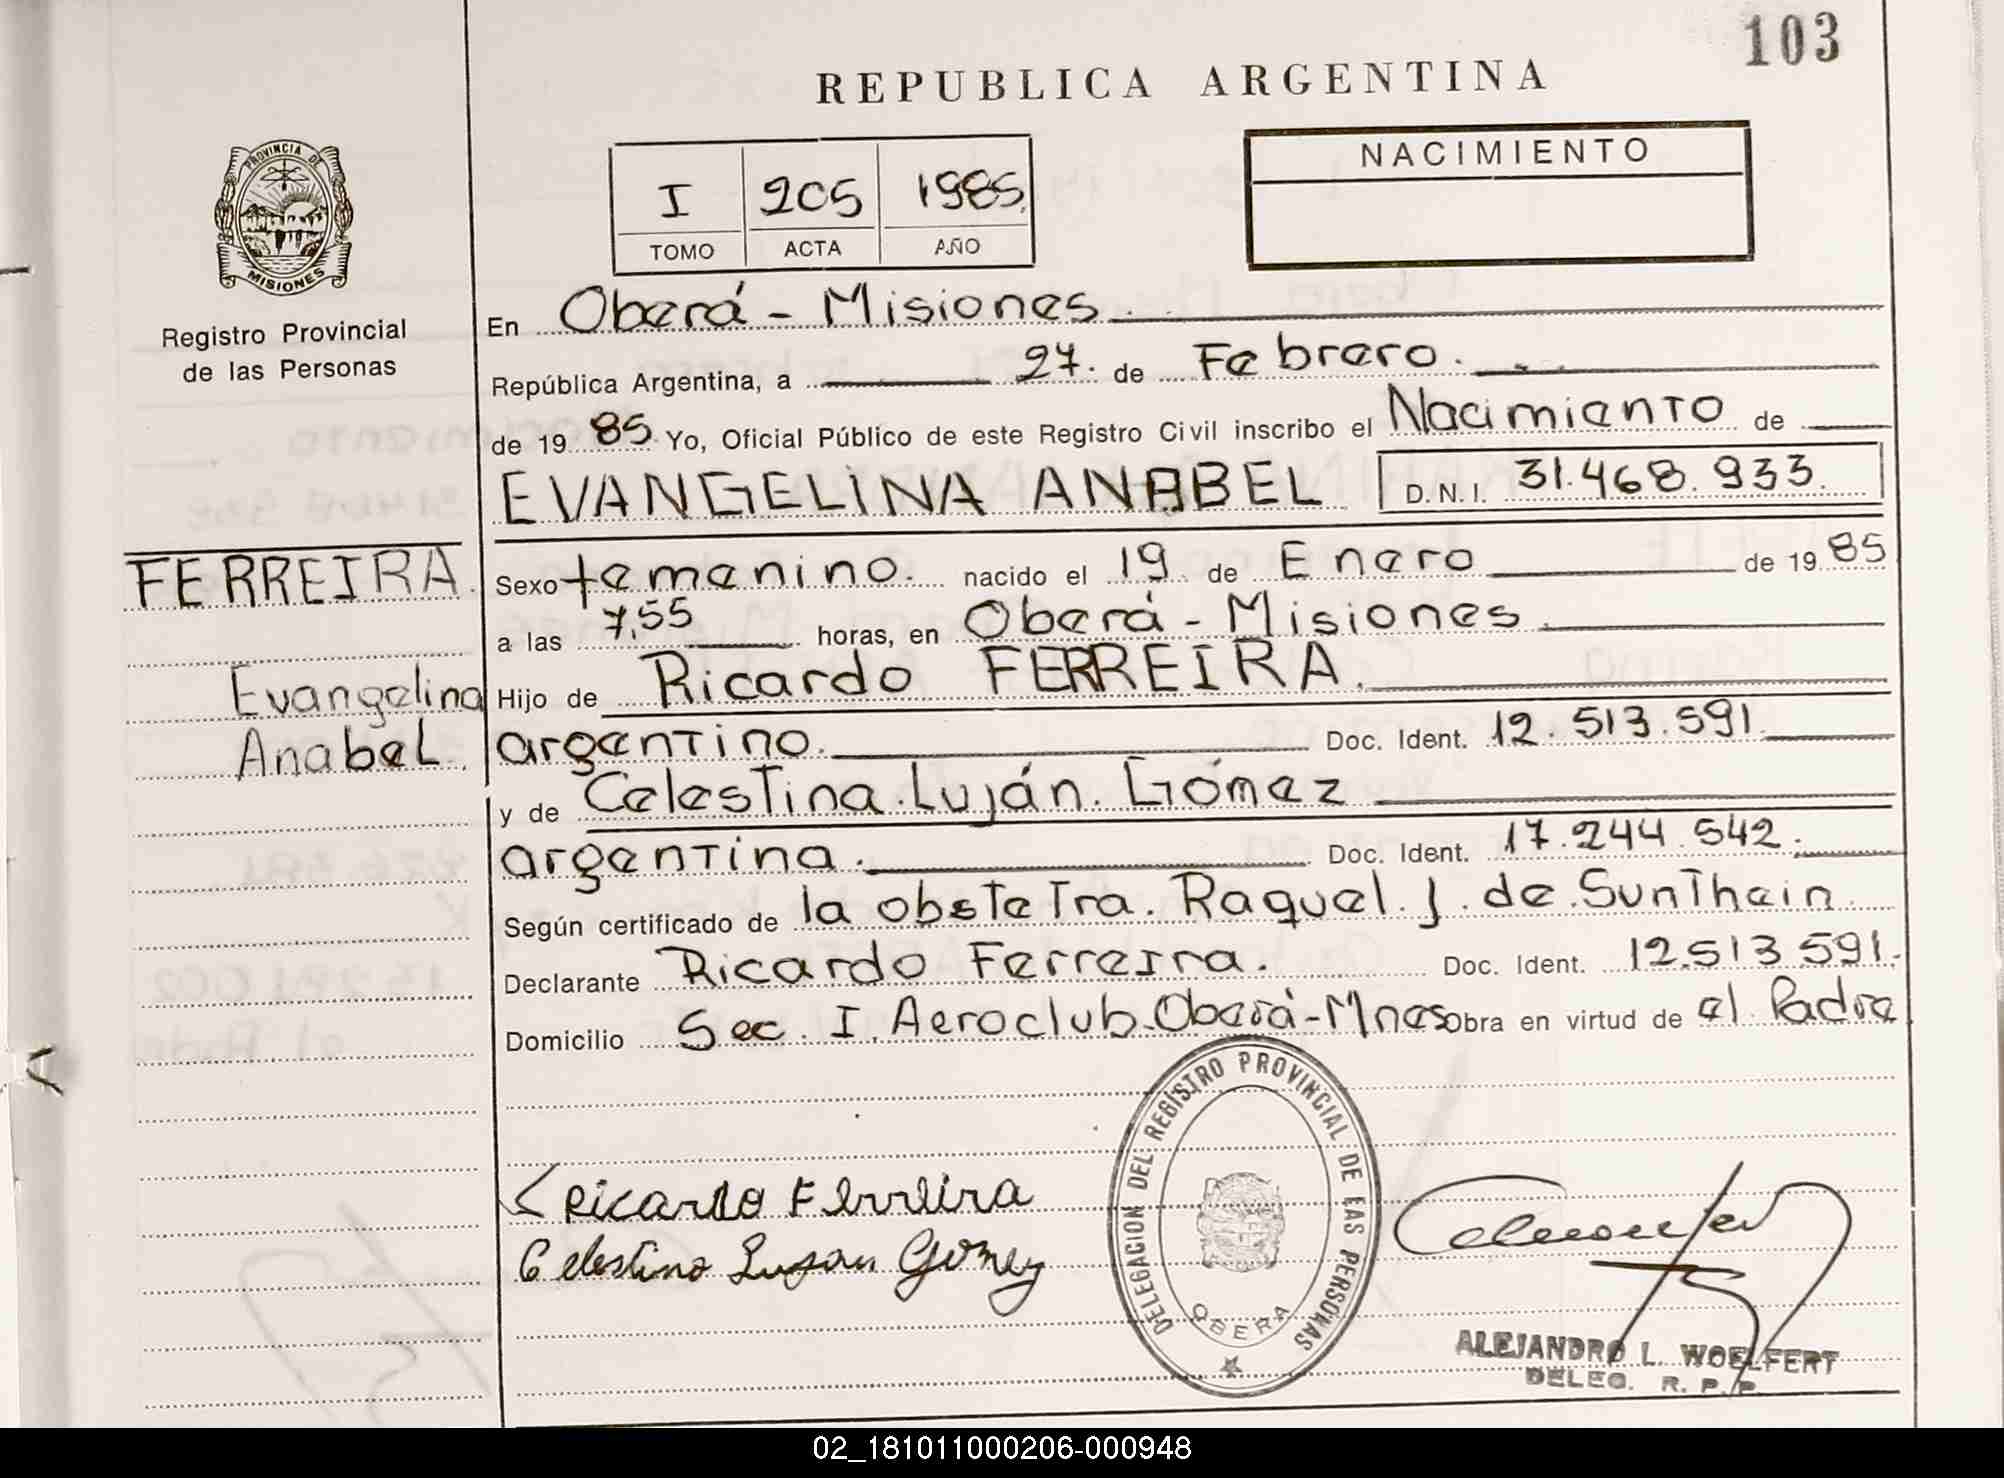 103
REPUBLICA ARGENTINA
PROVINCIA DE
MISIONES
Registro Provincial
de las Personas
I 205 1985.
TOMO ACTA AÑO
NACIMIENTO
En Oberá - Misiones.
República Argentina, a 27. de Febrero.
de 19 85 Yo, Oficial Público de este Registro Civil inscribo el Nacimiento de
EVANGELINA ANABEL D.N.I. 31.468.933.
FERREIRA.
Sexo femenino. nacido el 19 de Enero de 19 85
a las 7,55 horas, en Oberá - Misiones.
Evangelina
Anabel.
Hijo de Ricardo FERREIRA.
argentino. Doc. Ident. 12.513.591.
y de Celestina Luján Gómez
argentina. Doc. Ident. 17.244.542.
Según certificado de la obstetra. Raquel. J. de Sunthein.
Declarante Ricardo Ferreira. Doc. Ident. 12.513.591.
Domicilio Sec. I. Aeroclub. Oberá - Mnes obra en virtud de el Padre
DELEGACION DEL REGISTRO PROVINCIAL DE LAS PERSONAS
OBERA
Ricardo Ferreira
Celestina Lujan Gomez
ALEJANDRO L. WOELFERT
DELEG. R. P. P.
02_181011000206-000948